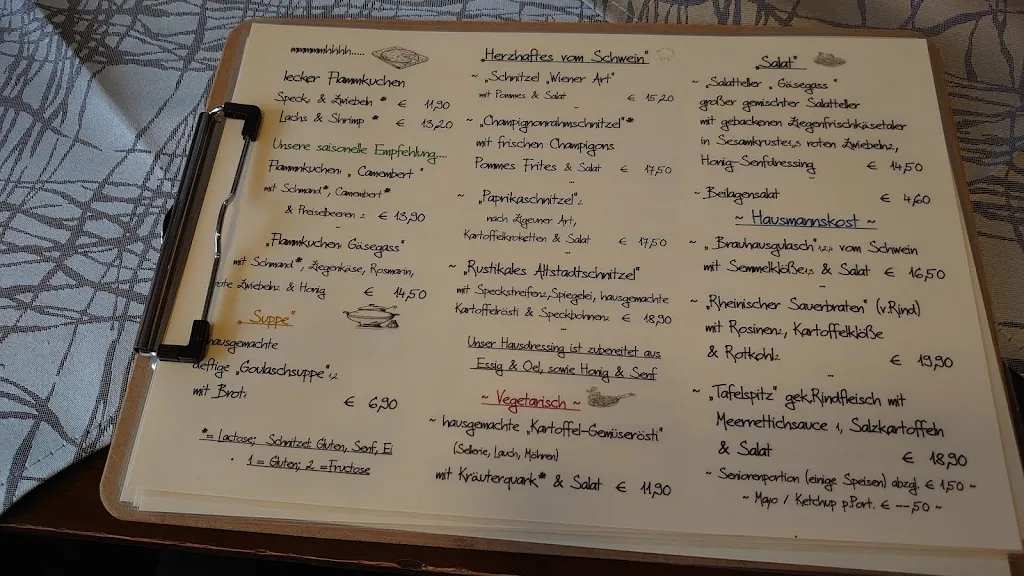 mmmmhhhh.....
lecker Flammkuchen
Speck, & Zwiebeln * € 11,90
Lachs & Shrimp * € 13,20
Unsere saisonelle Empfehlung....
Flammkuchen „ Camembert "
mit Schmand*, Camembert*
& Preiselbeeren 2 € 13,90
„Flammkuchen: Gäsegass"
mit Schmand*, Ziegenkäse, Rosmarin,
rote Zwiebeln2 & Honig € 14,50
„ Suppe"
hausgemachte
deftige „Goulaschsuppe"1,2
mit Brot1 € 6,90
*= Lactose; Schnitzel: Gluten, Senf, Ei
1 = Gluten; 2 =Fructose
„Herzhaftes vom Schwein"
~ „Schnitzel „Wiener Art"
mit Pommes & Salat € 15,20
~ „Champignonrahmschnitzel"*
mit frischen Champigons
Pommes Frites & Salat € 17,50
~ „Paprikaschnitzel"2
nach Zigeuner Art,
Kartoffelkroketten & Salat € 17,50
~ „Rustikales Altstadtschnitzel"
mit Speckstreifen2,Spiegelei, hausgemachte
Kartoffelrösti & Speckbohnen2 € 18,90
Unser Hausdressing ist zubereitet aus
Essig & Oel, sowie Honig & Senf
~ Vegetarisch ~
~ hausgemachte „Kartoffel-Gemüserösti"
(Sellerie, Lauch, Möhren)
mit Kräuterquark* & Salat € 11,90
„Salat"
~ „Salatteller „ Gäsegass"
großer gemischter Salatteller
mit gebackenen Ziegenfrischkäsetaler
in Sesamkruste1,5 roten Zwiebeln2,
Honig-Senfdressing € 14,50
~ Beilagensalat € 4,60
~ Hausmannskost ~
~ „Brauhausgulasch"1,2, vom Schwein
mit Semmelklöße1,5 & Salat € 16,50
~ „Rheinischer Sauerbraten" (v.Rind)
mit Rosinen2, Kartoffelklöße
& Rotkohl2 € 19,90
~ „Tafelspitz" gek.Rindfleisch mit
Meerrettichsauce 1, Salzkartoffeln
& Salat € 18,90
~ Seniorenportion (einige Speisen) abzgl. € 1,50 ~
~ Mayo / Ketchup p.Port. € --,50 ~